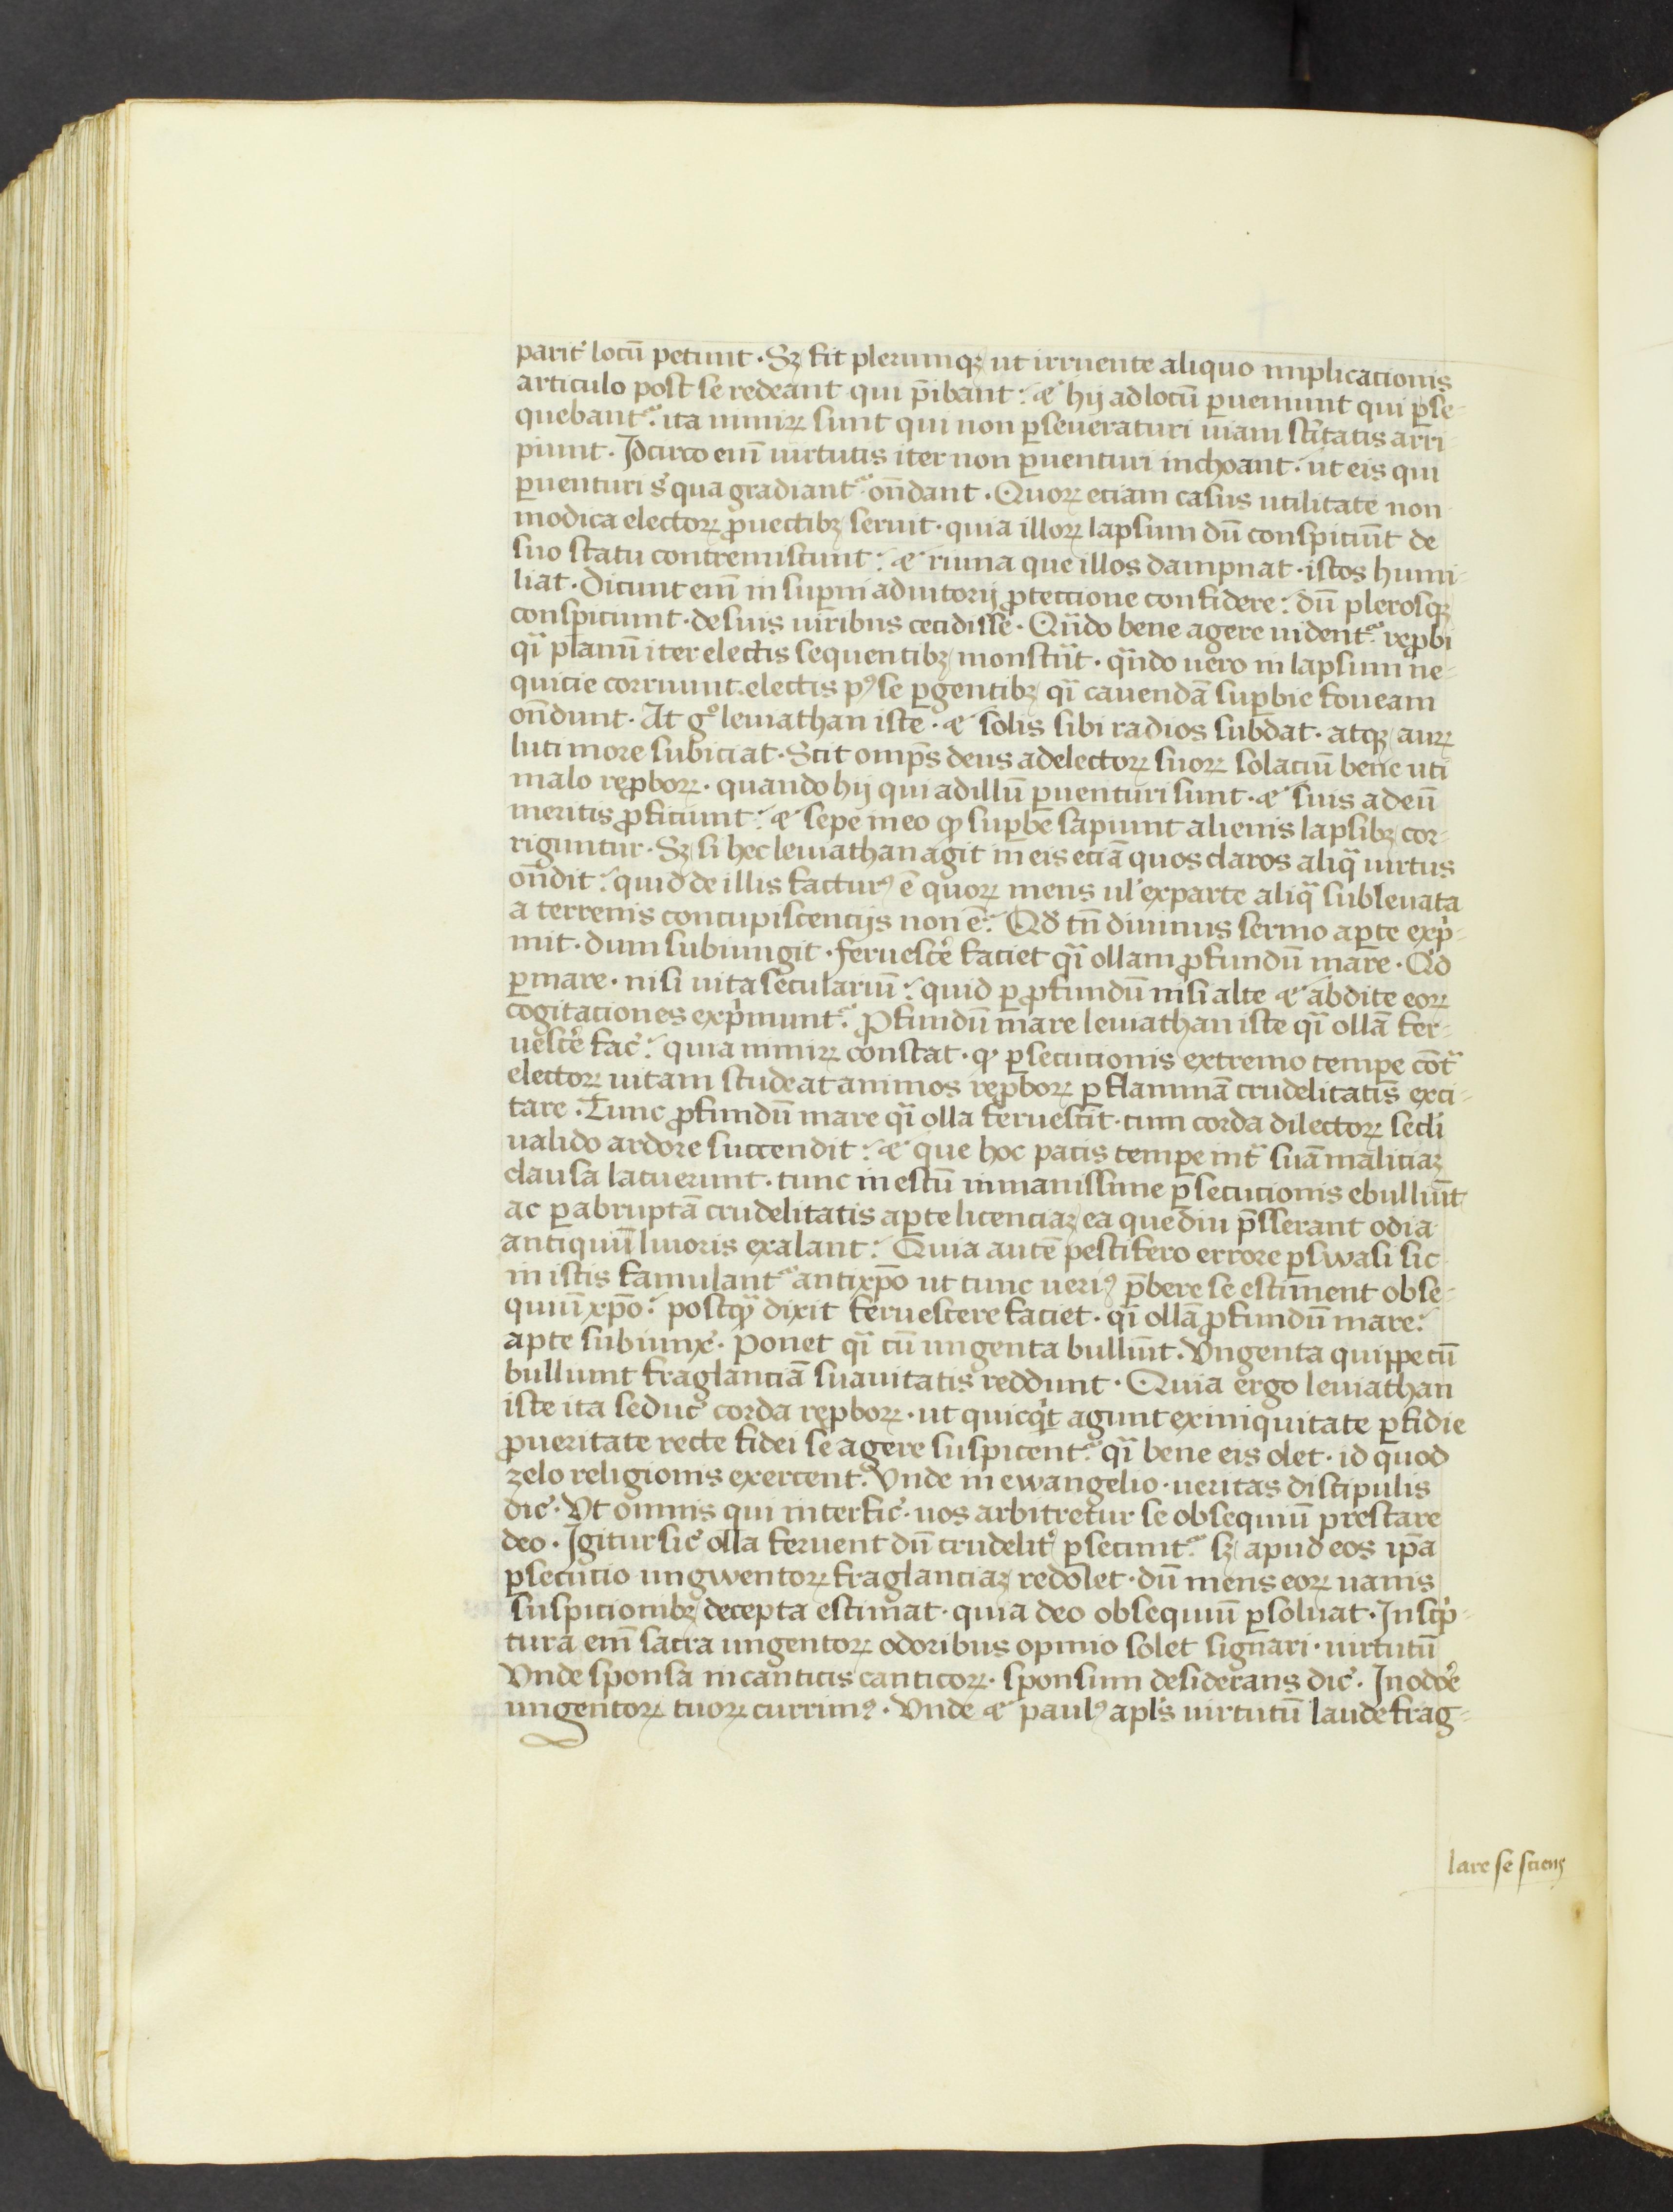 parit᷒ locū petunt · Sꝫ fit plerumqꝫ ut irruente aliquo implicacionis
articulo post se redeant qui p̄ibant : ⁊ hij ad locū ꝑueniunt qui ꝑse-
quebant᷒ : ita nimiꝝ sunt qui non ꝑseueraturi uiam sc̄itatis arri-
piunt · Idcirco eni᷒ uirtutis iter non ꝑuenturi inchoant · ut eis qui
ꝑuenturi s̄ qua gradiant᷒ on̄dant · Quoꝝ eciam casus utilitate non
modica electoꝝ ꝓuectibꝫ seruit · quia illoꝝ lapsum dū conspiciūt de
suo statu contremiscunt : ⁊ ruina que illos dampnat · istos humi-
liat · Dicunt eni᷒ in suꝑni adiutorij ꝓteccione confidere : dū plerosqꝫ
conspiciunt · de suis uiribus cecidisse · Qn̄do bene agere uident᷒ reꝓbi
qͣi planū iter electis sequentibꝫ monstrāt · qn̄do uero in lapsum ne-
quicie corruunt · electis pꝰ se ꝑgentibꝫ qͣi cauendā suꝑbie foueam
on̄dunt · At gͦ leuiathan iste · ⁊ solis sibi radios subdat · atqꝫ auꝝ
luti more subiciat · Scit omp̄s deus ad electoꝝ suoꝝ solaciū bene uti
malo reꝓboꝝ · quando hij qui ad illū ꝑuenturi sunt · ⁊ suis ad eū
meritis ꝓficiunt : ⁊ sepe in eo ꝙ suꝑbe sapiunt alienis lapsibꝫ cor-
riguntur · Sꝫ si hec leuiathan agit in eis eciā quos claros aliqͣ uirtus
on̄dit : quid de illis facturꝰ ē quoꝝ mens ul᷒ ex parte aliqͣ subleuata
a terrenis concupiscencijs non ē : Qd᷒ tn̄ diuinus sermo aꝑte exp̍-
mit · dum subiungit · feruesce᷒ faciet qͣi ollam ꝓfundū mare · Qd᷒
ꝑ mare · nisi uita seculariū : quid ꝑ ꝓfundū nisi alte ⁊ abdite eoꝝ
cogitaciones exp̍munt᷒ : Ꝓfundū mare leuiathan iste qͣi ollā fer-
uesce᷒ fac᷒ : quia nimiꝝ constat · ꝙ ꝑsecucionis extremo tempe cōtͣ
electoꝝ uitam studeat animos reꝓboꝝ ꝑ flammā crudelitatis exci-
tare · Tunc ꝓfundū mare qͣi olla feruescit · cum corda dilectoꝝ secli
ualido ardore succendit : ⁊ que hoc pacis tempe intͣ suā maliciaꝫ
clausa latuerunt · tunc in estū immanissime ꝑsecucionis ebulliūt
ac ꝑ abruptā crudelitatis aꝑte licenciaꝫ ea que diu p̄sserant odia
antiquū liuoris exalant : Quia autē pestifero errore ꝑswasi sic
in istis famulant᷒ antixp̄o ut tunc ueriꝰ p̄bere se estiment obse-
quiū xp̄o : postqͣꝫ dixit feruescere faciet · qͣi ollā ꝓfundū mare :
apte subiunx᷒ · Ponet qͣi cū ungenta bulliūt · Vngenta quippe cū
bulliunt fraglanciā suauitatis reddunt · Quia ergo leuiathan
iste ita seduc᷒ corda reꝓboꝝ · ut quicqͥt agunt ex iniquitate ꝑfidie
ꝓ ueritate recte fidei se agere suspicent᷒ : qͣi bene eis olet · id quod
zelo religionis exercent : Vnde in ewangelio · ueritas discipulis
dic᷒ · Vt omnis qui interfic᷒ · uos arbitretur se obsequiū prestare
deo · Igitur sic᷒ olla feruent dū crudelit᷒ ꝑsecunt᷒ : sꝫ apud eos ip̄a
ꝑsecucio ungwentoꝝ fraglanciaꝫ redolet · dū mens eoꝝ uanis
suspicionibꝫ decepta estimat · quia deo obsequiū ꝑsoluat · In scp̍-
tura eni᷒ sacra ungentoꝝ odoribus opinio solet signari · uirtutū
Vnde sponsa in canticis canticoꝝ · sponsum desiderans dic᷒ · In odoe᷒
ungentoꝝ tuoꝝ currimꝰ · Vnde ⁊ paulꝰ apl᷒s uirtutū laude frag-
lare se sciens